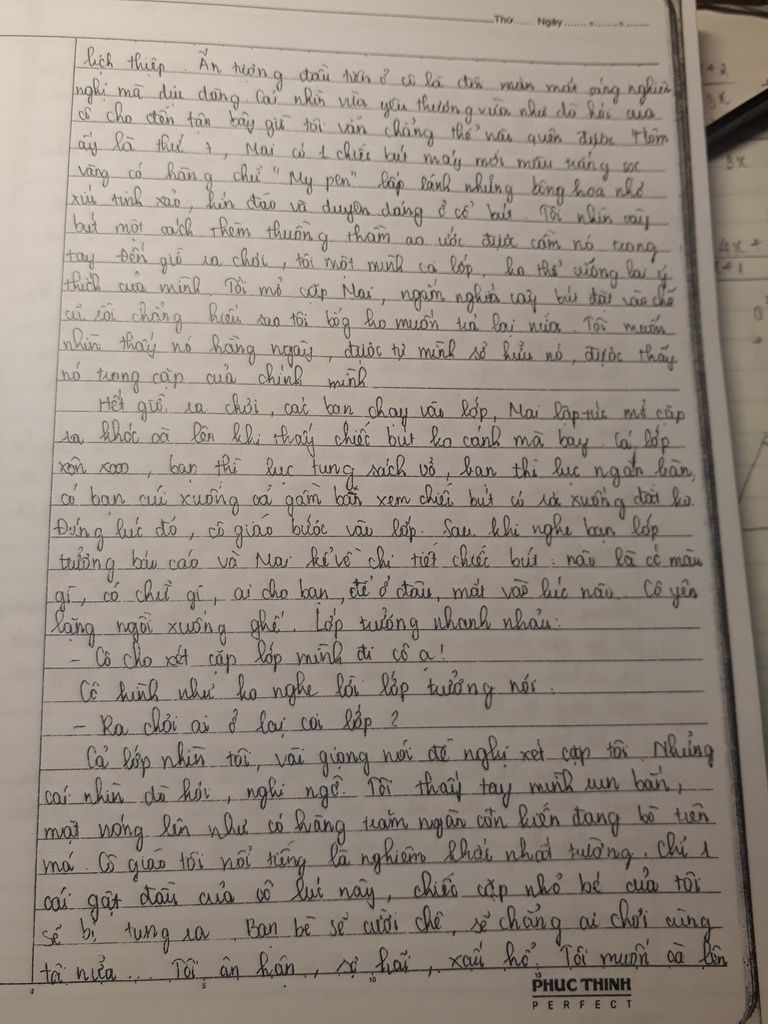 Thứ...... Ngày....... - ....... - .......
lịch thiệp. Ấn tượng đầu tiên ở cô là đôi màn mắt sáng nghiêm
nghị mà dịu dàng. Cái nhìn vừa yêu thương vừa như dò hỏi của
cô cho đến tân bây giờ tôi vẫn chẳng thể nào quên được. Hôm
ấy là thứ 7, Mai có 1 chiếc bút máy mới màu trắng sọc
vàng có hàng chữ "My pen" lấp lánh những bông hoa nhỏ
xíu tinh xảo, kín đáo và duyên dáng ở cổ bút. Tôi nhìn cây
bút một cách thèm thuồng thầm ao ước được cầm nó trong
tay. Đến giờ ra chơi, tôi một mình coi lớp, ko thể cưỡng lại ý
thích của mình. Tôi mở cặp Mai, ngắm nghía cây bút đặt vào chỗ
cũ rồi chẳng hiểu sao tôi bỗg ko muốn trả lại nữa. Tôi muốn
nhìn thấy nó hằng ngày, được tự mình sở hữu nó, được thấy
nó trong cặp của chính mình
Hết giờ ra chơi, các bạn chạy vào lớp, Mai lập tức mở cặp
ra khóc oà lên khi thấy chiếc bút ko cánh mà bay. Cả lớp
xôn xao, bạn thì lục tung sách vở, bạn thì lục ngăn bàn,
có bạn cúi xuống cả gầm bàn xem chiếc bút có rơi xuống đất ko.
Đúng lúc đó, cô giáo bước vào lớp. Sau khi nghe bạn lớp
trưởng báo cáo và Mai kể về chi tiết chiếc bút: nào là có màu
gì, có chữ gì, ai cho bạn, để ở đâu, mất vào lúc nào. Cô yên
lặng ngồi xuống ghế. Lớp trưởng nhanh nhảu:
- Cô cho xét cặp lớp mình đi cô ạ!
Cô hình như ko nghe lời lớp trưởng nói.
- Ra chơi ai ở lại coi lớp?
Cả lớp nhìn tôi, vài giọng nói đề nghị xét cặp tôi. Những
cái nhìn dò hỏi, nghi ngờ. Tôi thấy tay mình run bắn,
mặt nóng lên như có hàng trăm ngàn con kiến đang bò trên
má. Cô giáo tôi nổi tiếng là nghiêm khắc nhất trường. Chỉ 1
cái gật đầu của cô lúc này, chiếc cặp nhỏ bé của tôi
sẽ bị tung ra. Bạn bè sẽ cười chê, sẽ chẳng ai chơi cùng
tôi nữa... Tôi ân hận, sợ hãi, xấu hổ. Tôi muốn oà lên
0 5 10 15
PHUC THINH
PERFECT